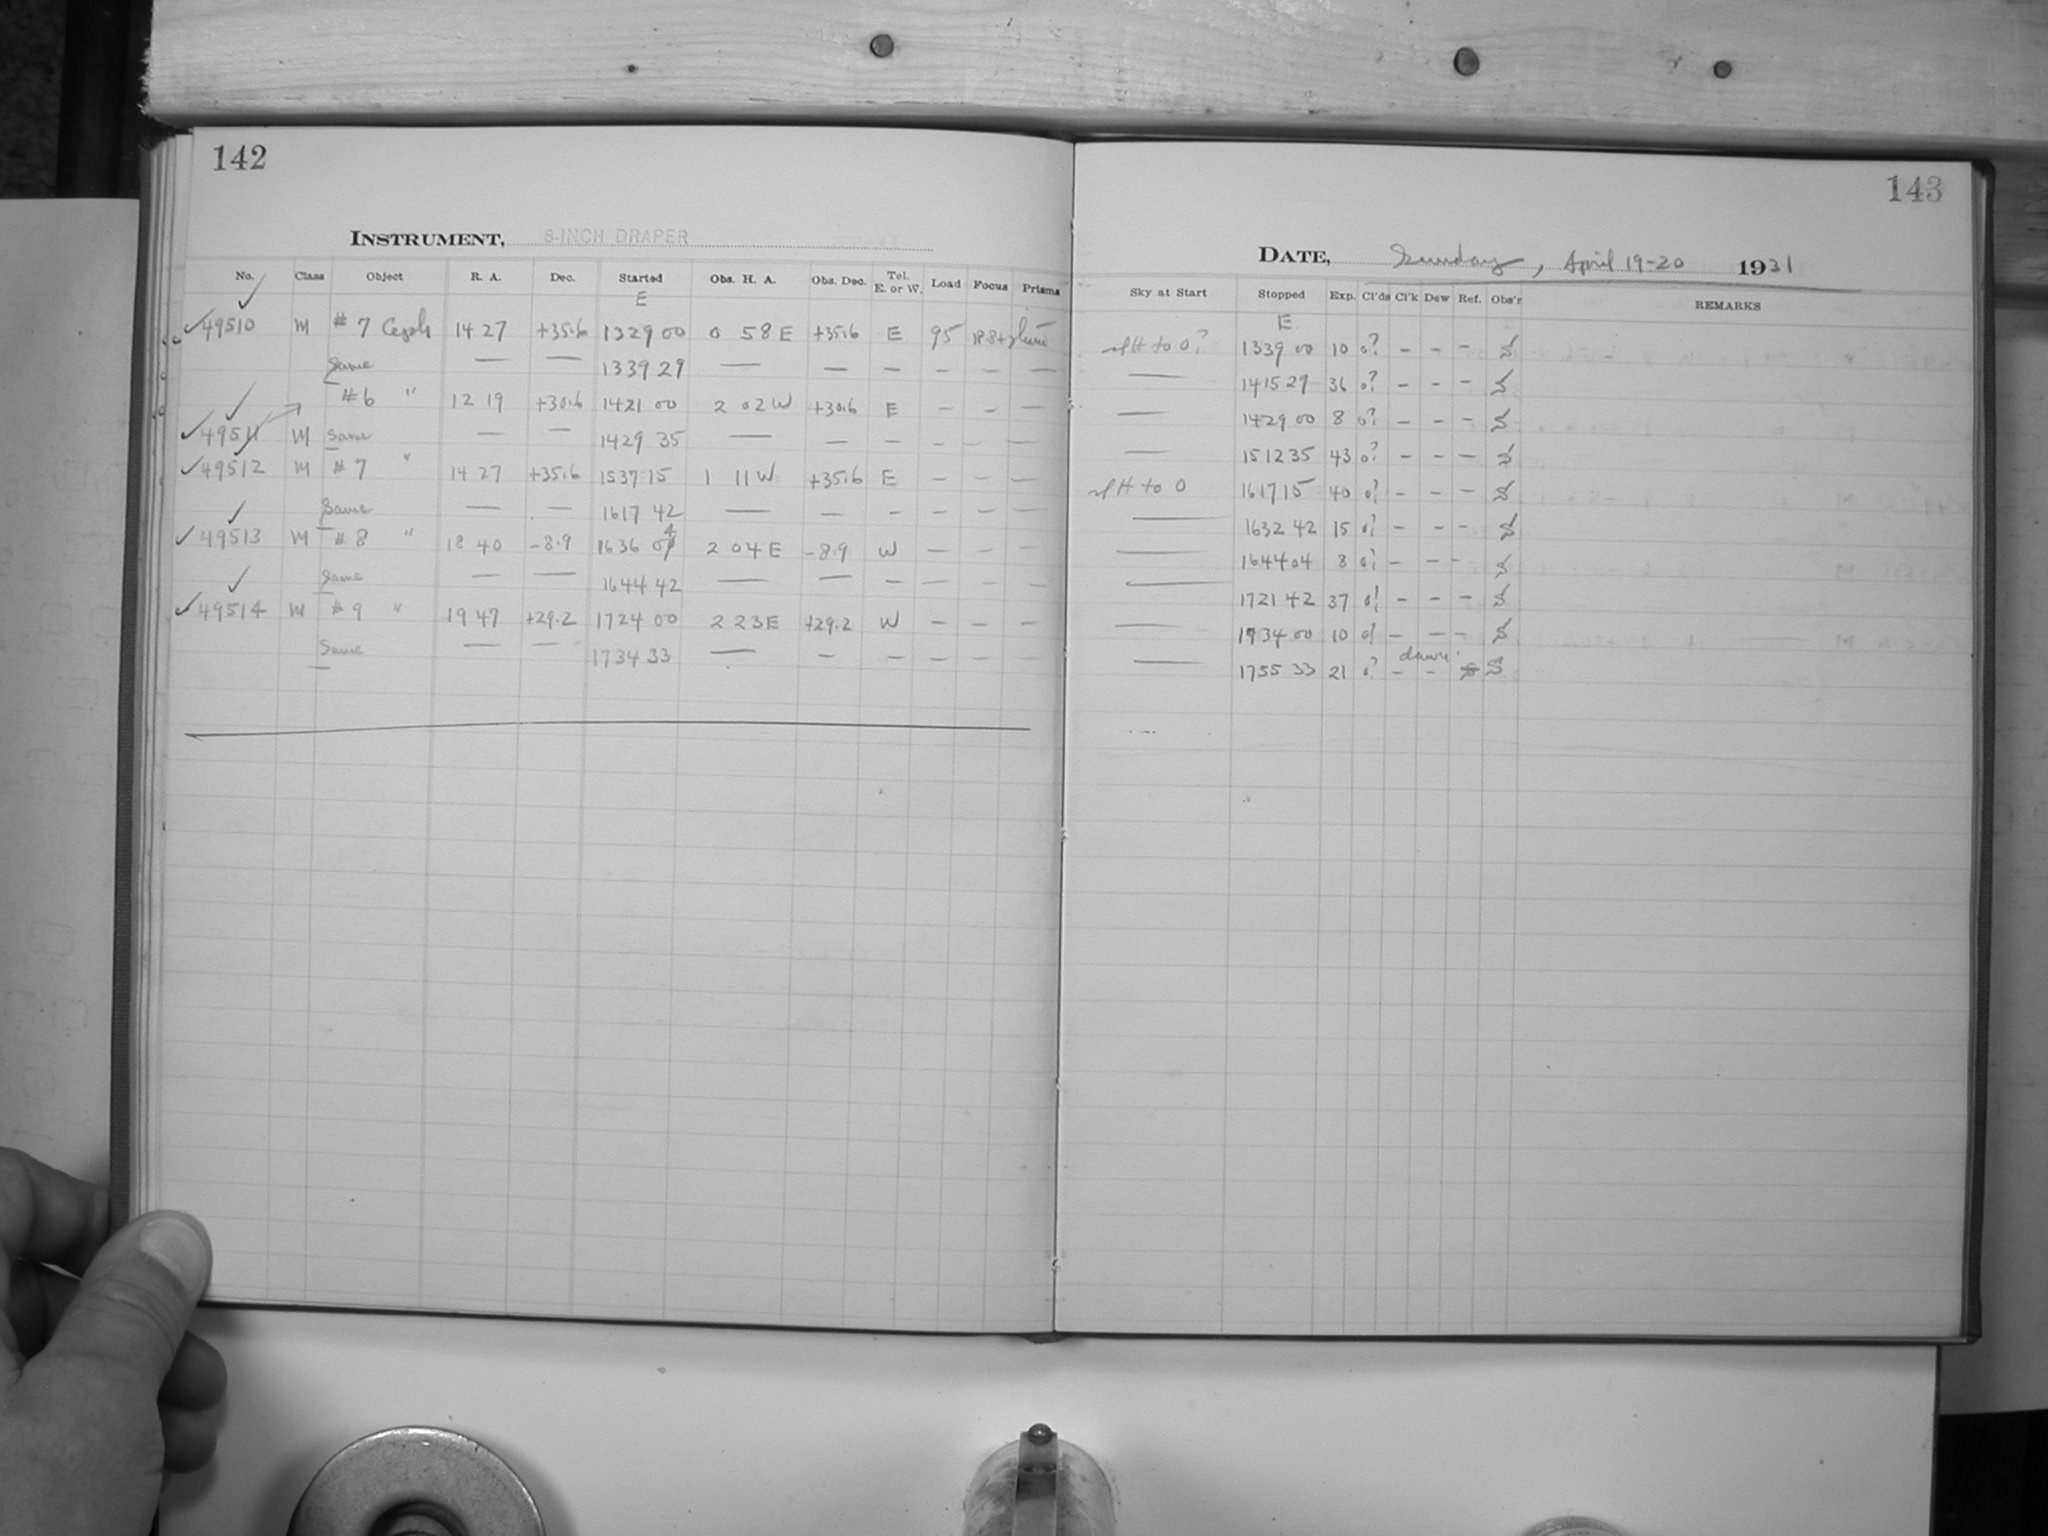 142
INSTRUMENT, 8-INCH DRAPER
No. Class Object R. A. Dec. Started Obs. H. A. Obs. Dec. Tel. E. or W. Load Focus Prisms
E
49510 M #7 Ceph 14 27 +35.6 13 29 00 0 58 E +35.6 E 95
Same — — 13 39 29 — — — — — —
#6 " 12 19 +30.6 14 21 00 2 02 W +30.6 E — — —
49511 M Same — — 14 29 35 — — — — — —
49512 M #7 " 14 27 +35.6 15 37 15 1 11 W +35.6 E — — —
Same — — 16 17 42 — — — — — —
49513 M #8 " 18 40 -8.9 16 36 04 2 04 E -8.9 W — — —
Same — — 16 44 42 — — — — — —
49514 M #9 " 19 47 +29.2 17 24 00 2 23 E +29.2 W — — —
Same — — 17 34 33 — — — — — —
143
DATE, Sunday, April 19-20 1931
Sky at Start Stopped Exp. Cl'ds Cl'k Dew Ref. Obs'r REMARKS
E
to 0? 13 39 00 10 0? — — — S
— 14 15 29 36 0? — — — S
— 14 29 00 8 0? — — — S
— 15 12 35 43 0? — — — S
to 0 16 17 15 40 0? — — — S
— 16 32 42 15 0? — — — S
— 16 44 04 8 0? — — — S
— 17 21 42 37 0? — — — S
— 17 34 00 10 0? — — — S
dawn
— 17 55 33 21 0? — — S